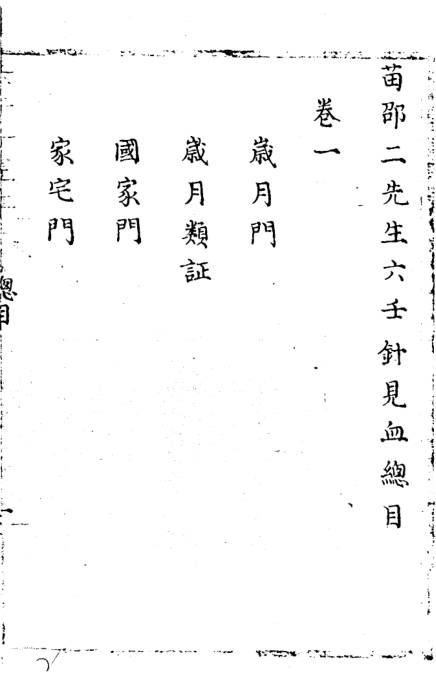 苗邵二先生六壬針見血總目
卷一
歲月門
歲月類証
國家門
家宅門
總目